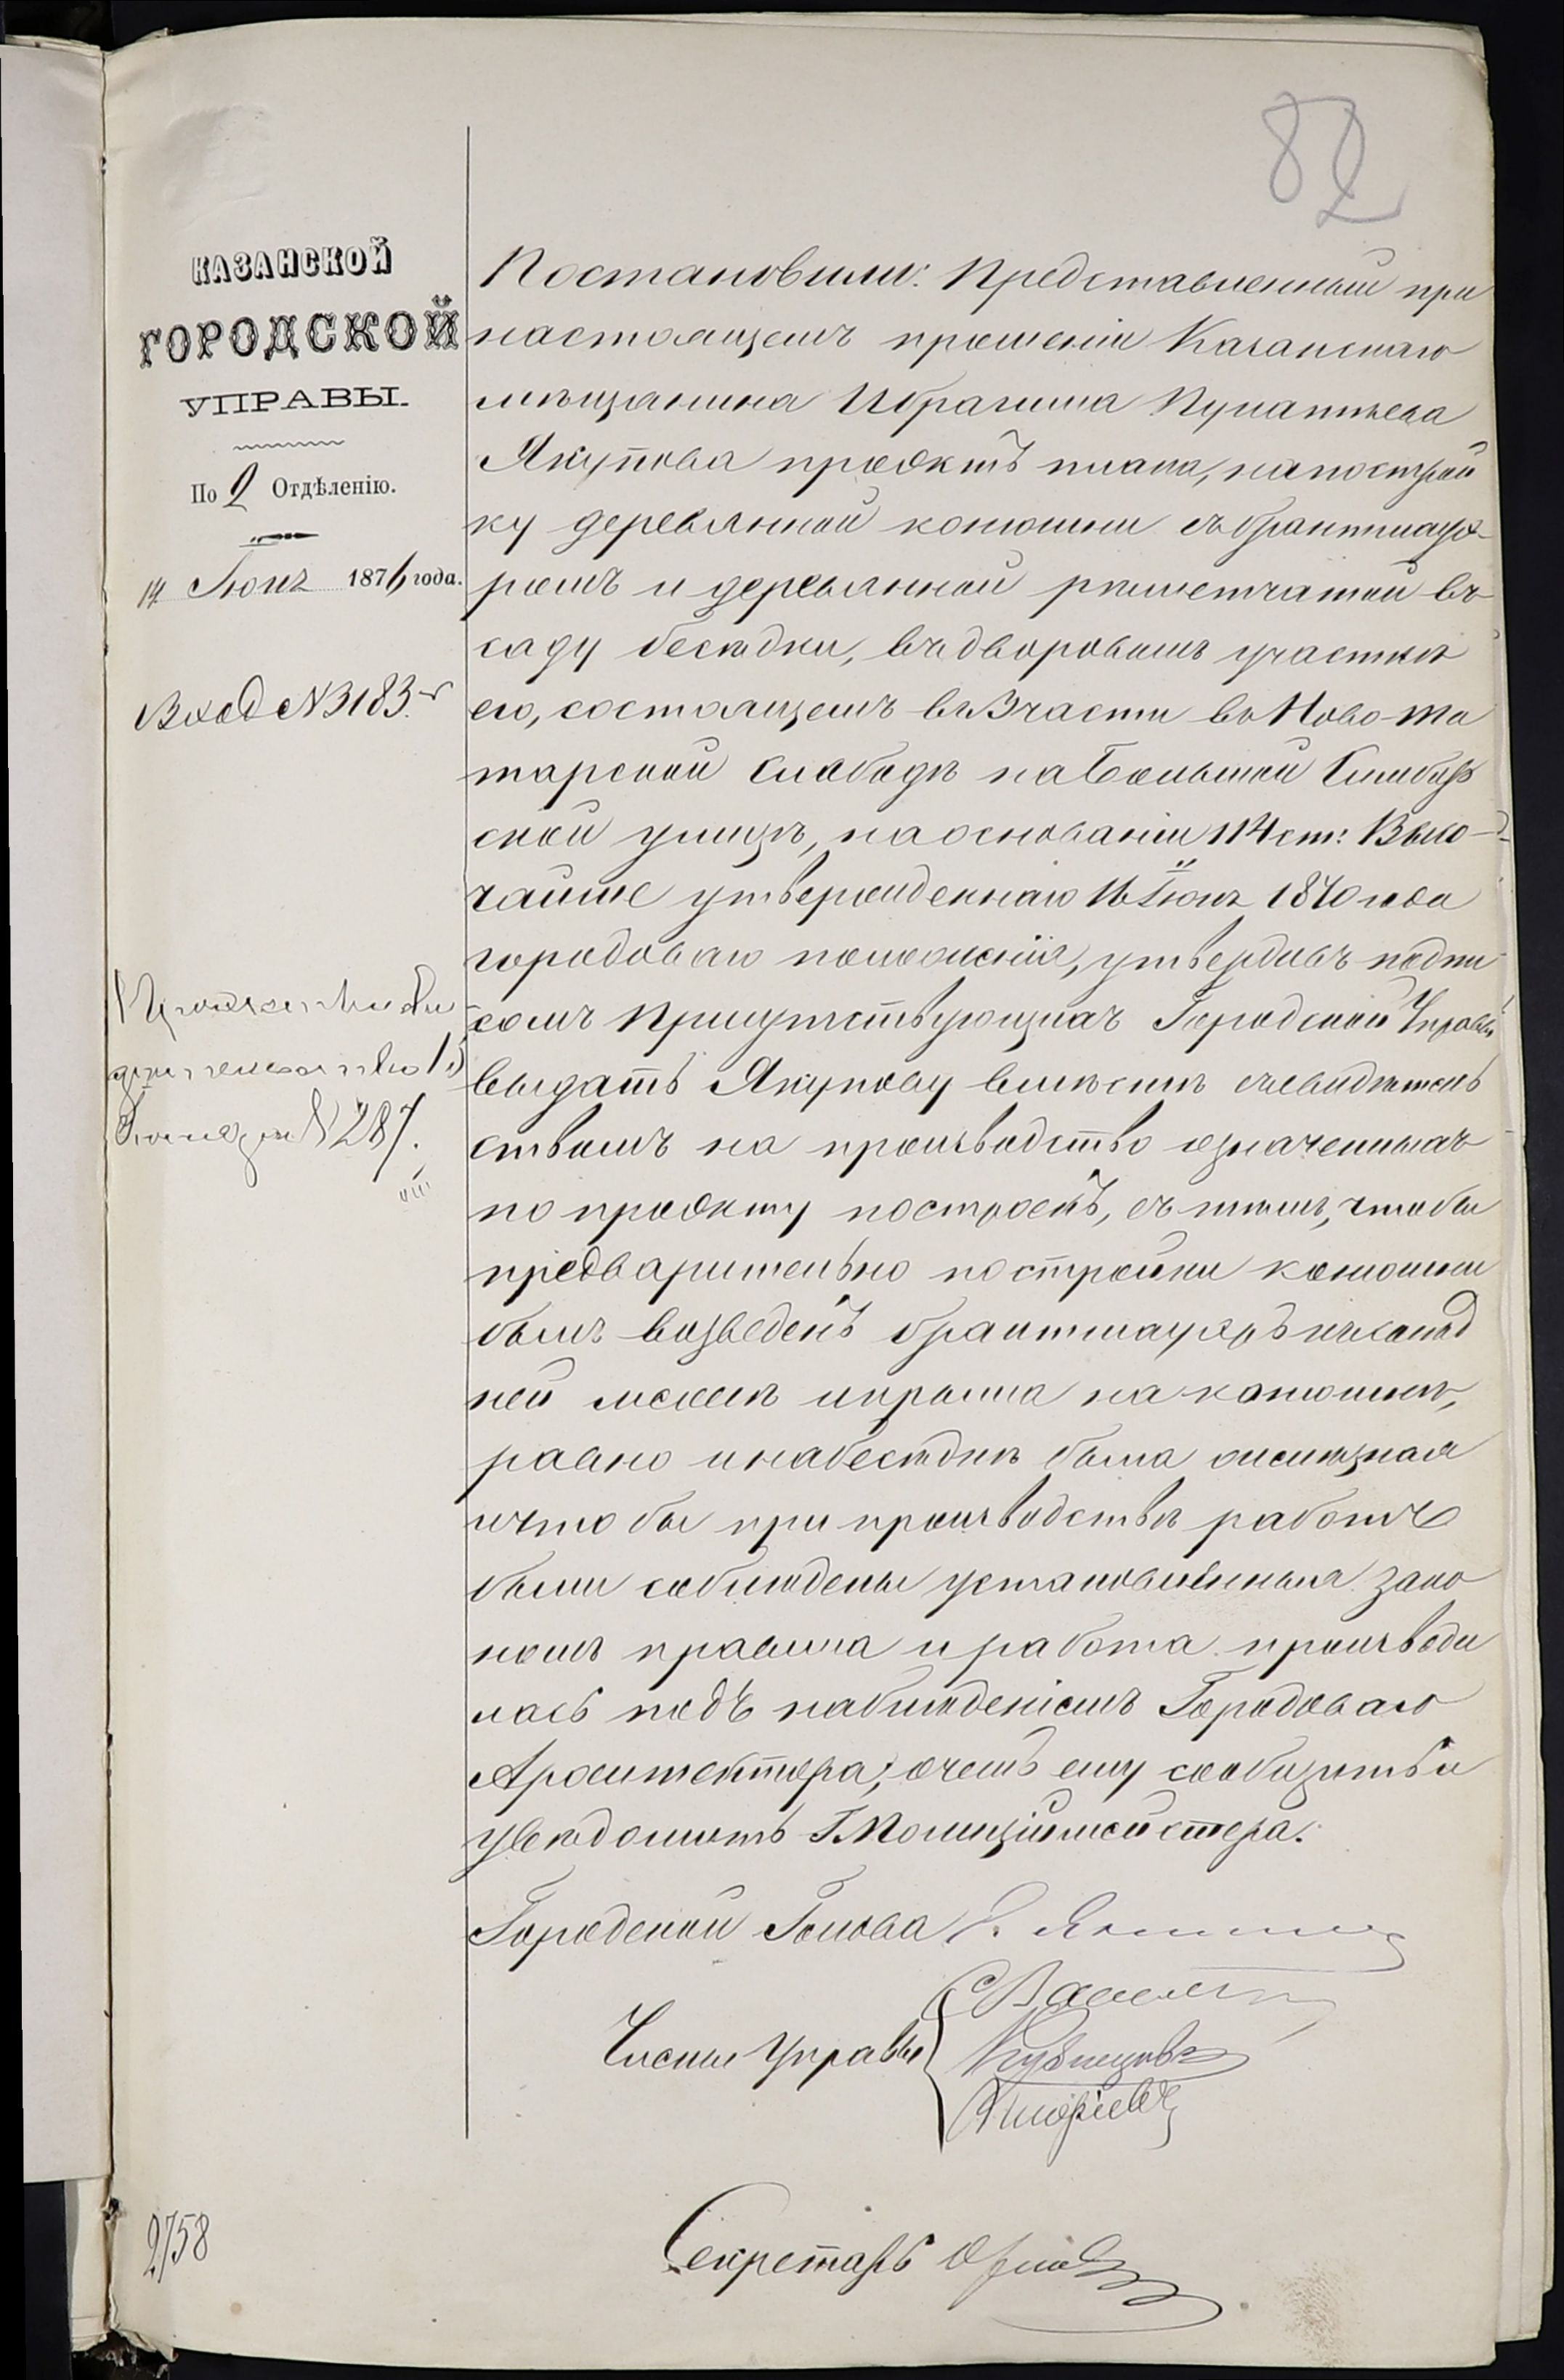 82
КАЗАНСКОЙ
ГОРОДСКОЙ
УПРАВЫ.
По 2 Отдѣленію.
14 Іюня 1876 года.
Вход №3183.
№ 287.
Постановили: Представленный при
настоящемъ прошеніи Казанскаго
мѣщанина Ибрагима
Якупова проэктъ плана, на построй
ку деревянной конюшни съ брантмауэ-
ромъ и деревянной рѣшетчатой въ
саду бесѣдки, въ дворовомъ участкѣ
его, состоящемъ въ 3 части въ Ново-та
тарской слободѣ на Большой Симбир
ской улицѣ, на основаніи 114 ст: Высо-
чайше утвержденнаго 16 Іюня 1870 года
городоваго положенія, утвердивъ подпи
сомъ Присутствующихъ Городской Управы
выдать Якупову вмѣстѣ съ свидѣтель
ствомъ на производство означенныхъ
по проэкту построекъ, съ тѣмъ, чтобы
предварительно постройки конюшни
былъ возведенъ брантмауэръ къ сосѣд
ней межѣ и крыша на конюшнѣ,
равно и на бесѣдкѣ была
и чтобы при производствѣ работъ
были соблюдены установленныя зако
номъ правила и работа производи
лась подъ наблюденіемъ Городоваго
Архитектора; о чемъ ему сообщить и
увѣдомить Г. Полиціймейстера.
Городской Голова
Члены Управы
Кузнецовъ
Секретарь
2758